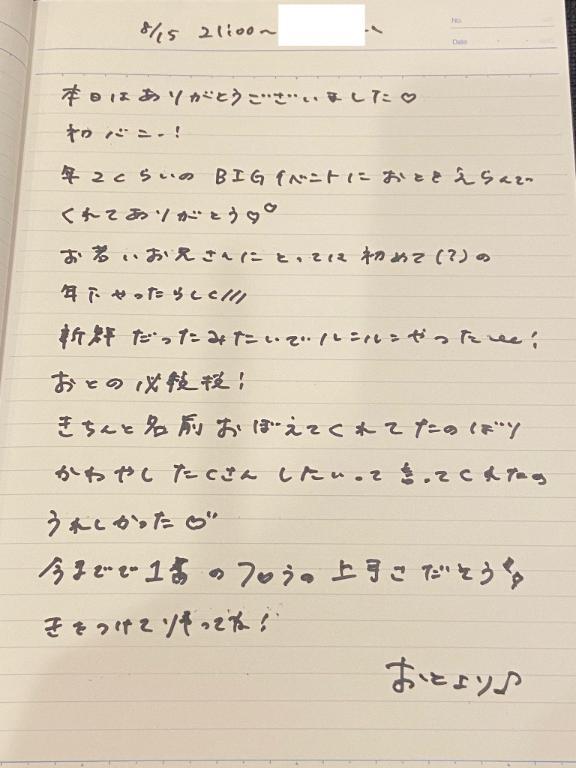 8/15 21:00〜
No.
Date
本日はありがとうございました♡
初バニー!
年2くらいのBIGイベントにおとをえらんで
くれてありがとう♡♡
お若いお兄さんにとっては初めて(?)の
年下やったらしく///
新鮮だったみたいでルンルンやったw!
おとの必
きちんと名前おぼえてくれてたのばり
かわやし たくさん したいって言ってくれたの
うれしかった♡
今までで1番のフ○うの上手さだそう
きをつけて帰ってね!
おとより♪